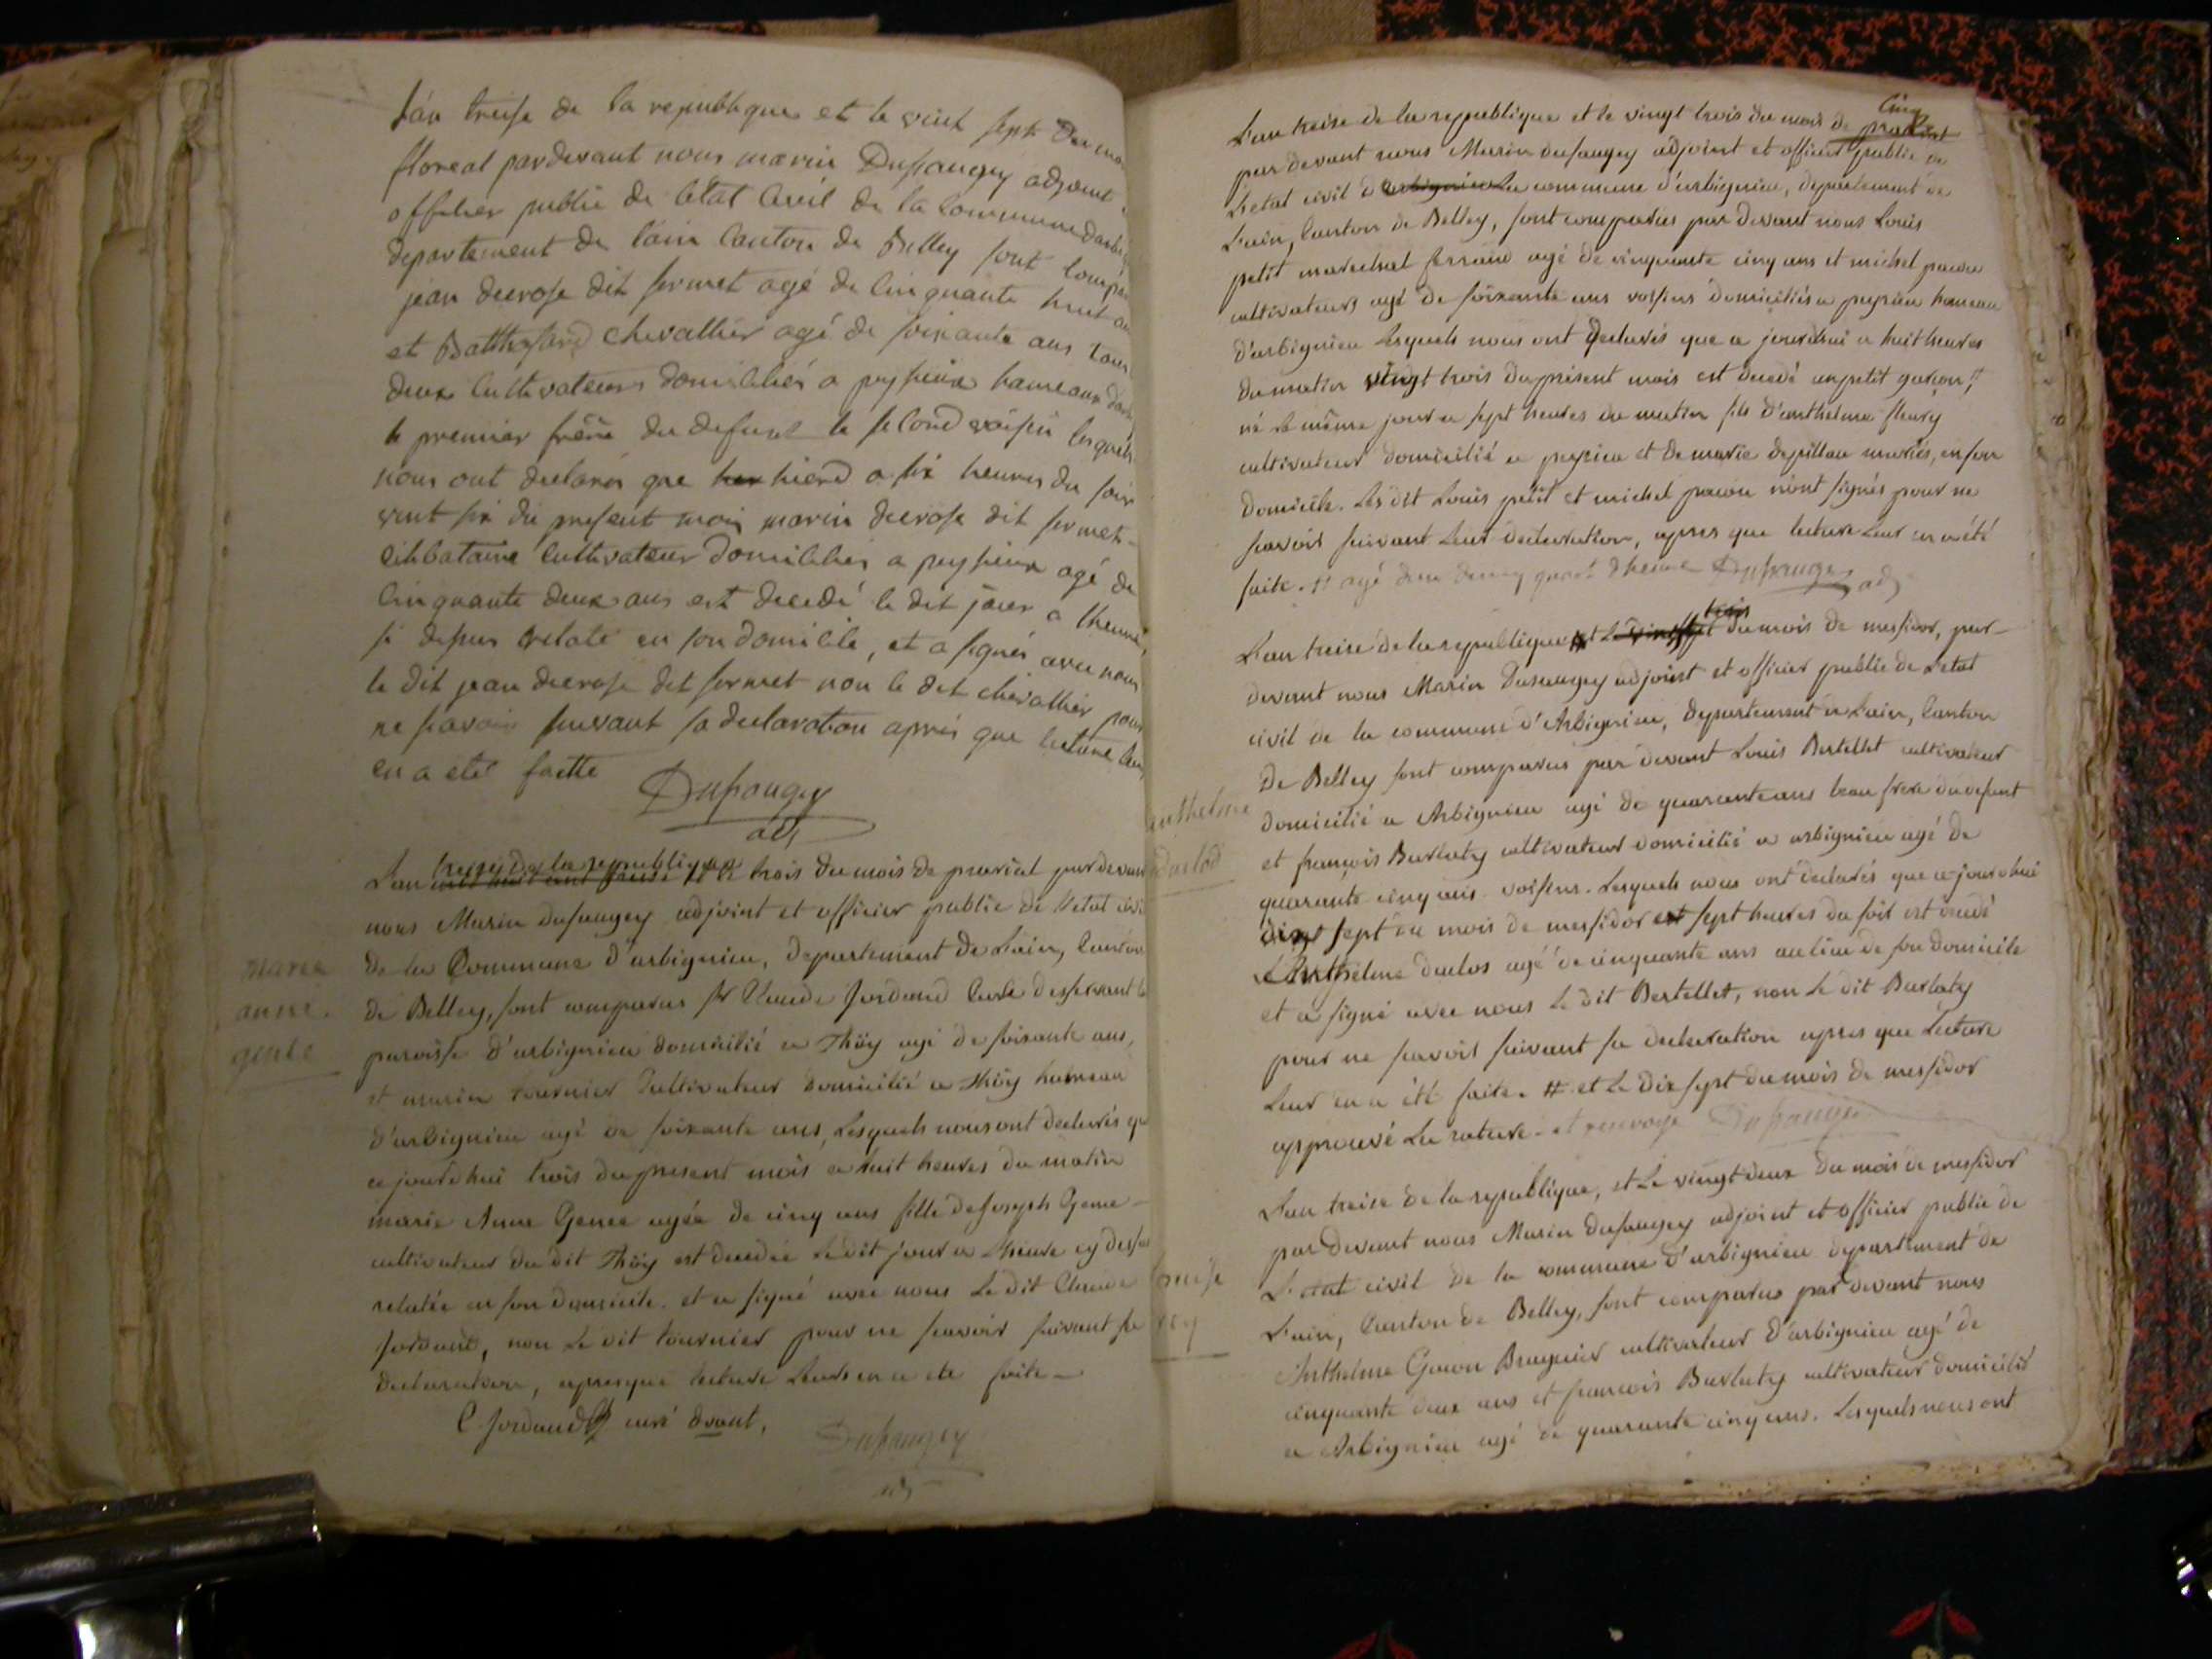 L'an treise de la republique et le vint sept du mo
floreal pardevant nous marin Dufaugey adjoint
officier public de l'état Civil de la Commune darbi
departement de l'ain Canton de Belley sont compa
jean decrose dit fermet agé de cinquante huit an
et Balthesard chevallier agé de soixante ans tous
deux cultivateurs domiciliés a peysieux hameaux dar
le premier frère du defunt le second voisin lesquels
nous ont declarés que hierd a six heures du soir
vint six du present mois marin decrose dit fermet
celibataire cultivateur domicilies a peysieux agé de
cinquante deux ans est decedé le dit jour a lheure
si dessus relaté en son domicile, et a signés avec nous
le dit jean decrose dit fermet non le dit chevallier pour
ne scavoir suivant sa declaration aprés que lecture leur
en a eté faitte
Dufaugey
adj
treise de la republique
L'an et le trois du mois de prairial par devant
nous Marin dufaugey adjoint et officier public de l'etat civi
de la Commune d'arbignieu, departement de L'ain, Canton
de Belley, sont comparus Sr Claude Jordand Curé desservant la
paroisse d'arbignieu domicilié a Thöy agé de soixante ans,
et marin tournier Cultivateur domicilié a thöy hameau
d'arbignieu agé de soixante ans, Lesquels nous ont declarés que
ce jourd'hui trois du present mois a huit heures du matin
marie Anne Genee agée de cinq ans fille de Joseph Genee
cultivateur du dit Thöy est decedée Le dit jour a L'heure cy dessus
relatée en son domicile. et a signé avec nous Le dit Claude
Jordand, non Le dit tournier pour ne scavoir suivant sa
declaration, apres que lecture Leurs en a ete faite
C. Jordand curé dvant,
Dufaugey
adj
marie
anne
L'an treise de la republique et le vingt trois du mois de prairial
par devant nous Marin dufaugey adjoint et officier public de
L'etat civil d'arbignieu La commune d'arbignieu, departement de
L'ain, Canton de Belley, sont comparus par devant nous Louis
petit marechal ferrand agé de cinquante cinq ans et michel pacou
cultivateurs agé de soixante ans voisins domiciliés a peysieu hameau
d'arbignieu Lesquels nous ont declarés que a jourd'hui a huit heures
du matin vingt trois du present mois est decedé un petit garcon, #
né Le même jour a sept heures du matin fils d'anthelme fleury
cultivateur domicilié a peysieu et de marie depillou mariés, en son
domicile. Les dit Louis petit et michel pacou n'ont signés pour ne
scavoir suivant Leur declaration, apres que lecture Leur en a été
faite. # agé quart d'heure Dufaugey adj
L'an treise de la republique # du mois de messidor, par
devant nous Marin Dufaugey adjoint et officier public de L'etat
civil de la commune d'Arbignieu, departement de L'ain, Canton
de Belley sont comparus par devant Louis Bertellet cultivateur
domicilié a Arbignieu agé de quarante ans beau frere du defunt
et françois Barlatey cultivateur domicilié a arbignieu agé de
quarante cinq ans voisins. Lesquels nous ont declarés que a jourd'hui
dix sept du mois de messidor et sept heures du soir est decedé
Anthelme duclos agé de cinquante ans au lieu de son domicile
et a signé avec nous Le dit Bertellet, non Le dit Barlatey
pour ne scavoir suivant sa declaration apres que Lecture
Leur en a été faite. # et Le dix sept du mois de messidor
approuvé La rature et renvoye Dufaugey
anthelme
duclod
L'an treise de la republique, et Le vingt deux du mois de messidor
par devant nous Marin dufaugey adjoint et officier public de
L'etat civil de la commune d'arbignieu departement de
L'ain, Canton de Belley, sont comparus par devant nous
Anthelme Goion Bruguier cultivateur d'arbignieu agé de
cinquante deux ans et francois Barlatey cultivateur domicilié
a Arbignieu agé de quarante cinq ans. Lesquels nous ont